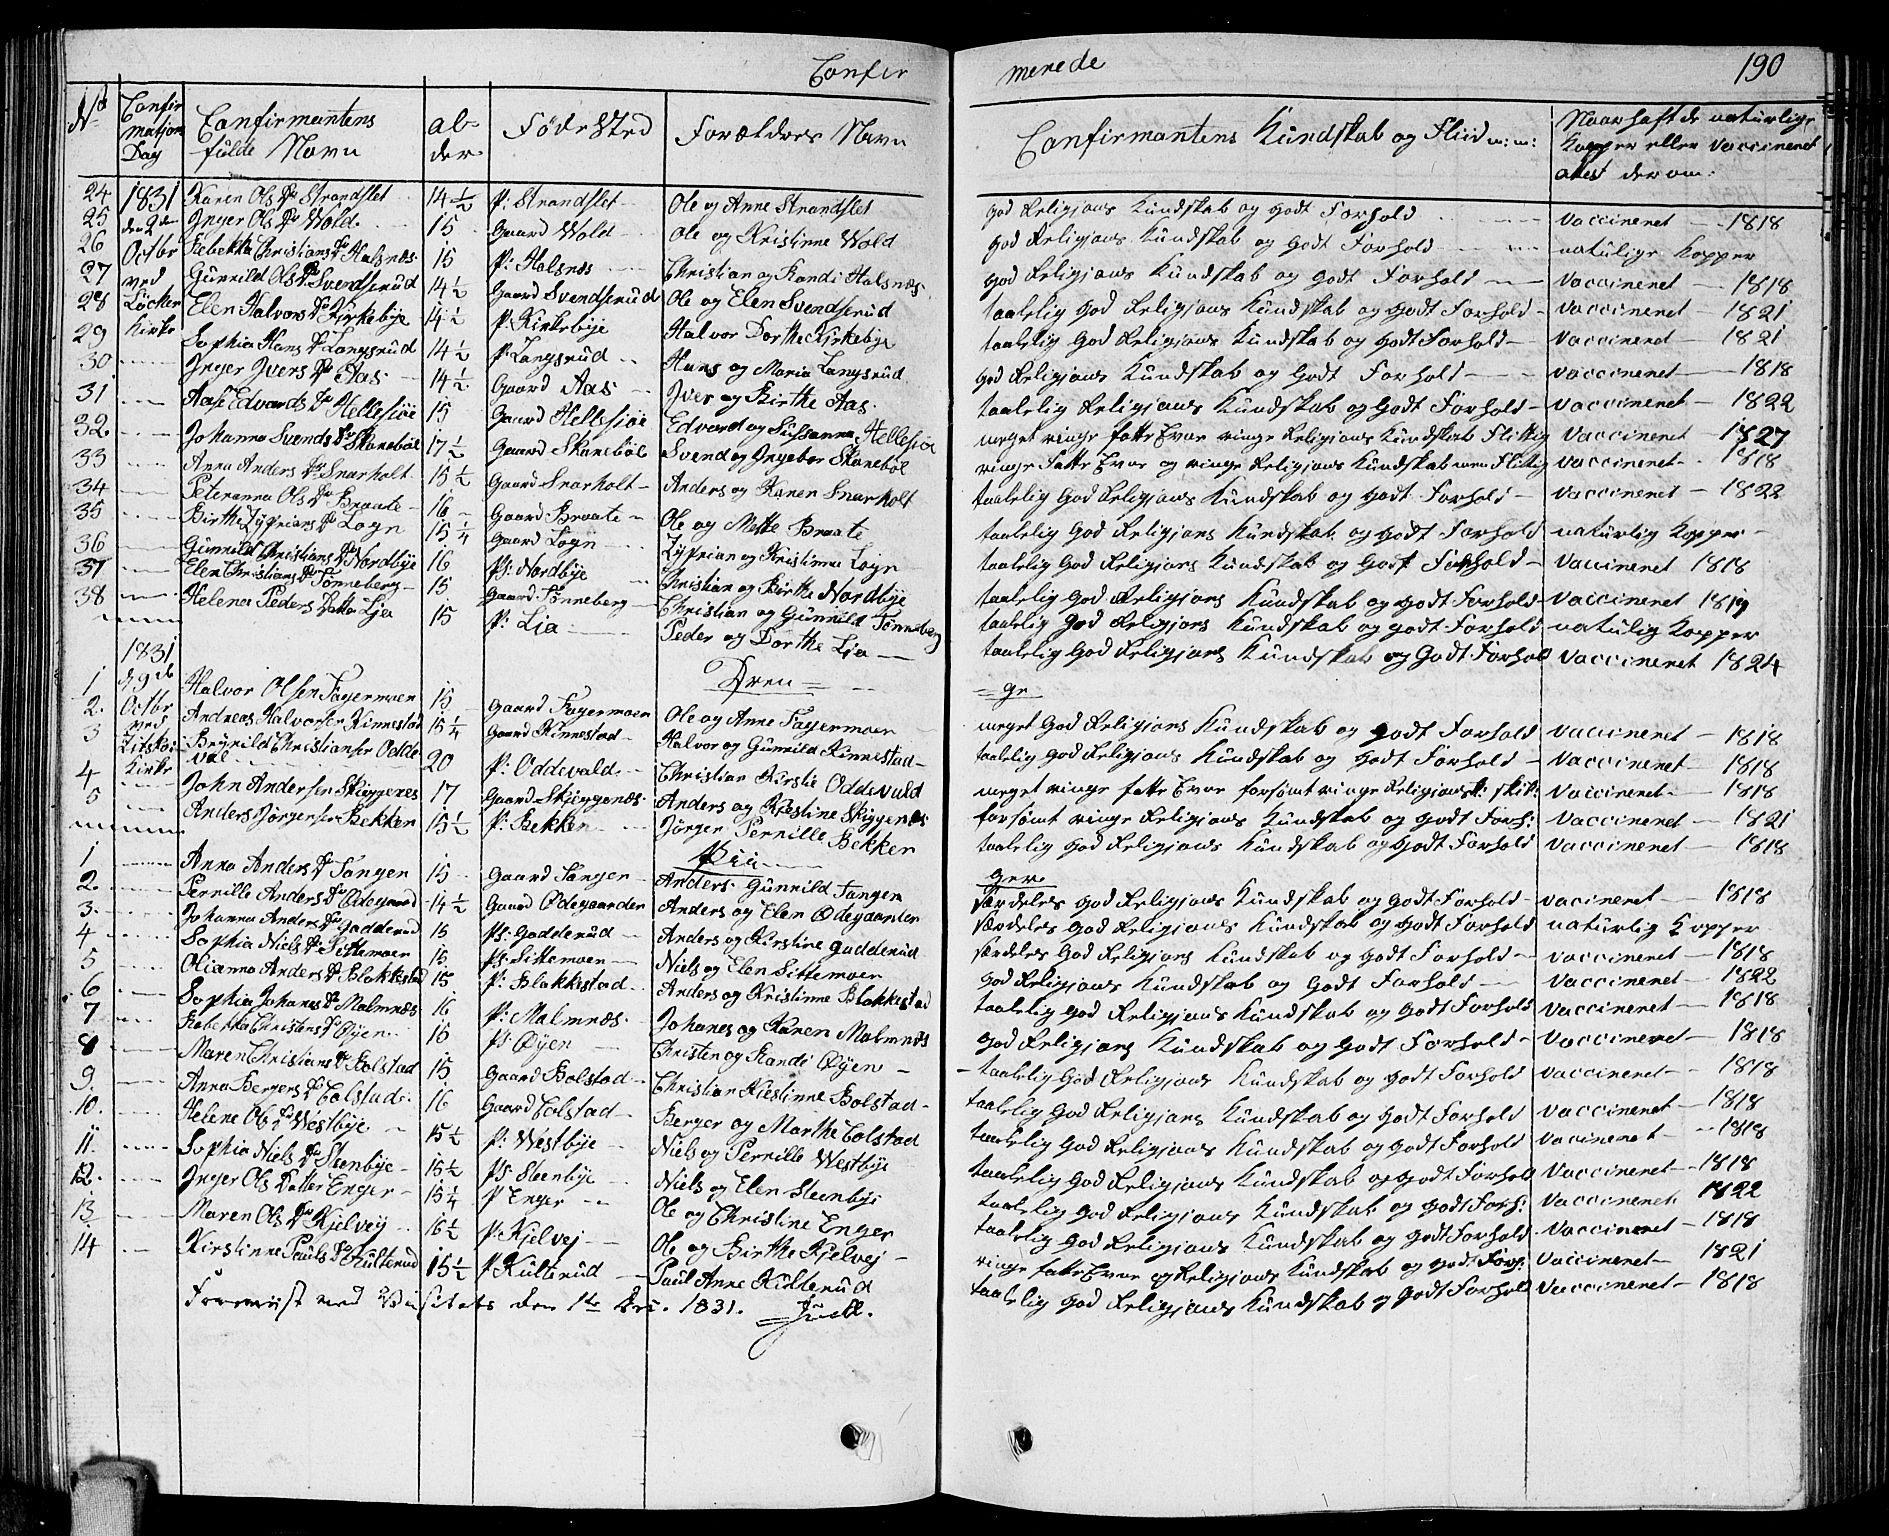 Confir merede 190
No Confirmations Dag Confirmantens fulde Navn alder Fødested Forældres Navn Confirmantens Kundskab og Fliid m: m: Naar haft de naturlige Kopper eller vaccineret attest derom:
24 1831 Karen Ols Dr Strandslet 14 1/2 P: Strandslet Ole og Anne Strandslet god Religions Kundskab og godt Forhold vaccineret 1818
25 den 2den Inger Ols Dr Wold 15 Gaard Wold Ole og Kristinne Wold god Religions Kundskab og godt Forhold natulige Kopper
26 Octbr Rebekka Christians Dr Halsnæs 15 P: Halsnæs Christian og Randi Halsnæs god Religions Kundskab og godt Forhold vaccineret 1818
27 ved Gunnild Ols Dr Svendserud 14 1/2 Gaard Svendserud Ole og Elen Svendserud taalelig god Religions Kundskab og godt Forhold vaccineret 1821
28 Löcken Elen Halvors Dr Kirkebye 14 1/2 P: Kirkebye Halvor Dorthe Kirkebye taalelig god Religions Kundskab og godt Forhold vaccineret 1821
29 Kirke Sophia Hans Dr Langsrud 14 1/2 P: Langsrud Hans og Maria Langsrud god Religions Kundskab og godt Forhold vaccineret 1818
30 Inger Ivers Dr Aas 14 1/2 Gaard Aas Iver og Birthe Aas taalelig Religions Kundskab og godt Forhold vaccineret 1822
31 Aase Edvards Dr Hellesiøe 15 Gaard Hellesjöe Edvard og Sussanna Hellesiöe meget ringe fatte Evne ringe Religions Kundskab Flittig vaccineret 1827
32. Johanna Svends Dr Skaneböl 17 1/2 Gaard Skaneböl Svend og Ingebor Skaneböl ringe Fatte Evne og ringe Religions Kundskab men Flittig vaccineret 1818
33 Anna Anders Dr Snarholt 15 1/2 Gaard Snarholt Anders og Karen Snarholt taalelig god Religions Kundskab og godt Forhold vaccineret 1822
34 Peteranna Ols Dr Braate 16 Gaard Braate Ole og Mette Braate taalelig god Religions Kundskab og godt Forhold naturlig Kopper
35 Birthe Zyprians Dr Logn 15 1/4 Gaard Logn Zyprian og Kristinna Logn taalelig god Religions Kundskab og godt Forhold Vaccineret 1818
36 Gunnild Christians Dr Nordbye 16 Ps: Nordbye Christian og Birthe Nordbye taalelig god Religions Kundskab og godt Forhold vaccineret 1819
37 Elen Christians Dr Tønneberg 15 Gaard Tønneberg Christian og Gunnild Tønneberg taalelig god Religions Kundskab og godt Forhold natulig Kopper
38 Helena Peders Datter Lia 15 P: Lia Peder og Dorthe Lia taalelig god Religions Kundskab og Godt Forhold vaccineret 1824
1831 Drenge
1 d 9de Halvor Olsen Fagermoen 15 Gaard Fagermoen Ole og Anne Fagermoen meget god Religions Kundskab og godt Forhold vaccineret 1818
2. Octbr Andreas Halvorsen Kinnestad 15 1/4 Gaard Kinnestad Halvor og Gunnild Kinnestad taalelig god Religions Kundskab og godt Forhold vaccineret 1818
3 ved Zitskov Brynild Christiansen Oddeval 20 P: Oddevald Christian Kirstie Oddevald meget ringe fatte Evne forsømt ringe Religions vaccineret 1818
4 Kirke John Andersen Skiggenes 17 Gaard Skjeggenæs Anders og Kirstine Skiggenæs forsömt ringe Religions Kundskab og godt Forh: vaccineret 1821
5 Anders Jörgensen Bekken 15 1/2 P: Bekken Jörgen Pernille Bekken taalelig god Religions Kundskab og godt Forhold vaccineret 1818
Piiger
1 Anna Anders Dr Tangen 15 Gaard Tangen Anders Gunnild Tangen særdeles god Religions Kundskab og godt Forhold vacineret 1818
2. Pernille Anders Dr Ödegaard 14 1/2 Gaard Ödegaarden Anders og Elen Ödegaarden særdeles god Religions Kundskab og godt Forhold naturlig Kopper
3. Johanna Anders Dr Gadderud 15 Ps: Gadderud Anders og Kirstine Gadderud særdeles god Religions Kundskab og godt Forhold vaccineret 1818
4 Sophia Niels Dr Sittemoen 15 Ps: Sittemoen Niels og Elen Sittemoen god Religions Kundskab og godt Forhold vaccineret 1822
5 Olianna Anders Dr Blakkestad 15 P: Blakkestad Anders og Kristinne Blakkestad taalelig god Religions Kundskab og godt Forhold vaccineret 1818
6 Sophia Johanes Dr Malmnæs 16 P: Malmnæs Johanes og Karen Malmnæs god Religions Kundskab og godt Forhold vaccineret 1818
7 Rebekka Christens Dr Öyen 15 Ps Öyen Christen og Randi Öyen taalelig god Religions Kundskab og godt Forhold vaccineret 1818
8 Maren Christians Dr Bolstad 15 Gaard Bolstad Christian Kirstinne Bolstad taalelig god Religions Kundskab og godt Forhold vaccineret 1818
9. Anna Bergers Dr Colstad 16 Gaard Colstad Berger og Marthe Colstad taalelig god Religions Kundskab og godt Forhold vaccineret 1818
10. Helene Ols Dr Westbye 15 1/2 P: Westbye Niels og Pernille Westbye taalelig god Religions Kundskab og godt Forhold vaccineret 1818
11. Sophia Niels Dr Steenbye 15 1/2 Ps: Steenbye Niels og Elen Steenbye taalelig god Religions Kundskab og godt Forh: vaccineret 1822
12. Inger Ols Datter Enger 15 1/4 P Enger Ole og Christine Enger taalelig god Religions Kundskab og godt Forhold vaccineret 1818
13 Maren Ols Dr Kjelvej 16 1/2 P: Kjelvej Ole og Birthe Kjelvej ringe fatte Evne og Religions Kundskab og godt Forh: vaccineret 1821
14 Kirstinne Pauls Dr Kulterud 15 1/2 P Kulterud Paul Anne Kulterud taalelig god Religions Kundskab og godt Forhold vaccineret 1818
Foreviist ved Visitats den 1te 1831. Juell.